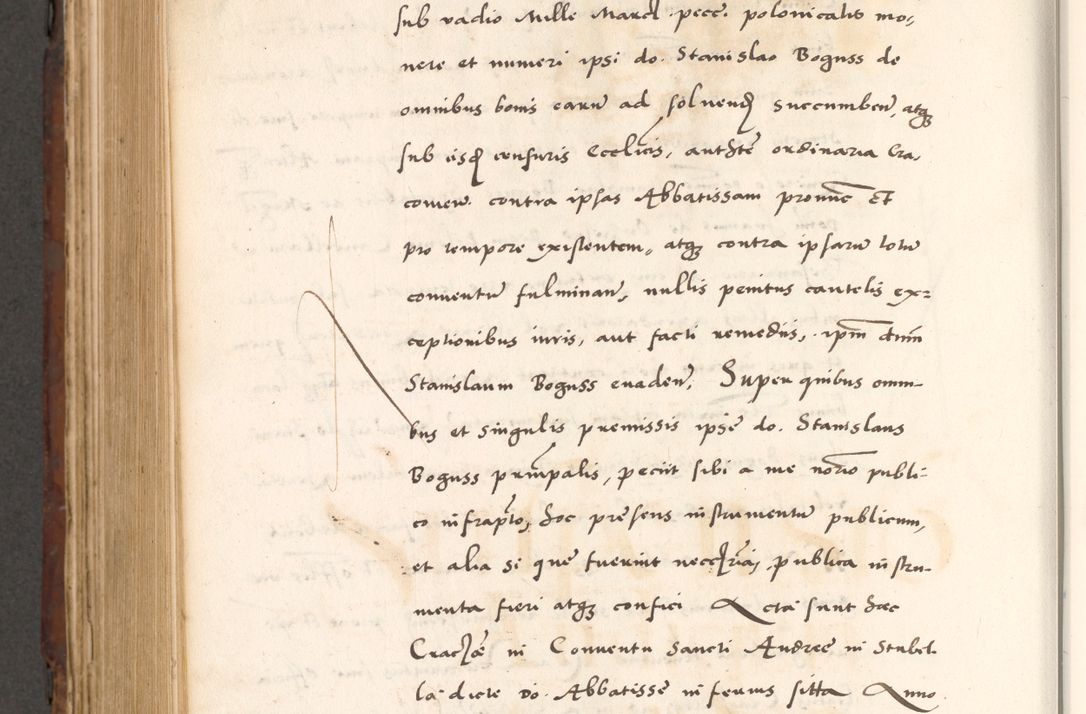 sub vadio Mille Marcl. pecc. polonicalis mo,
nere et numeri ipsi do. Stanislao Boguss de
omnibus bonis earu ad soluend succumben, atq
sub iisd censuris Ecclicis, auctte ordinaria Cra,
coview. contra ipsas Abbatissam pronunc Et
pro tempore existentem, atq contra ipsaru totu
conventu fulminan, nullis penitus cautelis ex=
ceptionibus iuris, aut facti remediis, ipm dnm
Stanislaum Boguss evaden, Super quibus omni-
bus et singulis premissis ipse do. Stanislaus
Boguss principalis, peciit sibi a me norio publi-
co infrapto, hoc presens instrumentu publicum,
et alia si que fuerint neccria, publica instru-
menta fieri atq confici Acta sunt haec
Crac in Conventu Sancti Andree in Stubel-
la dicte do. Abbatisse inferius sitta Anno